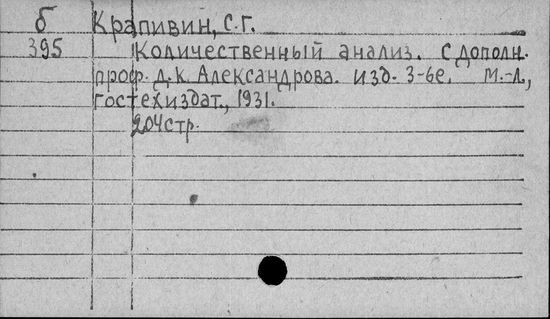 б Крапивин, С.Г.
395 Количественный анализ. С дополн.
проф. Д.К. Александрова. изд. 3-бе. М.-Л.,
Гостехиздат, 1931.
204стр.